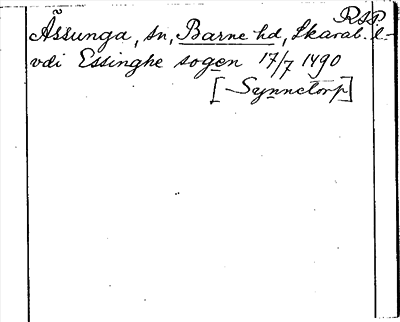 RSP.
Ässunga, sn, Barne hd, Skarab. l-
vdi Essinghe sogen 17/7 1490
[-Synnetorp]